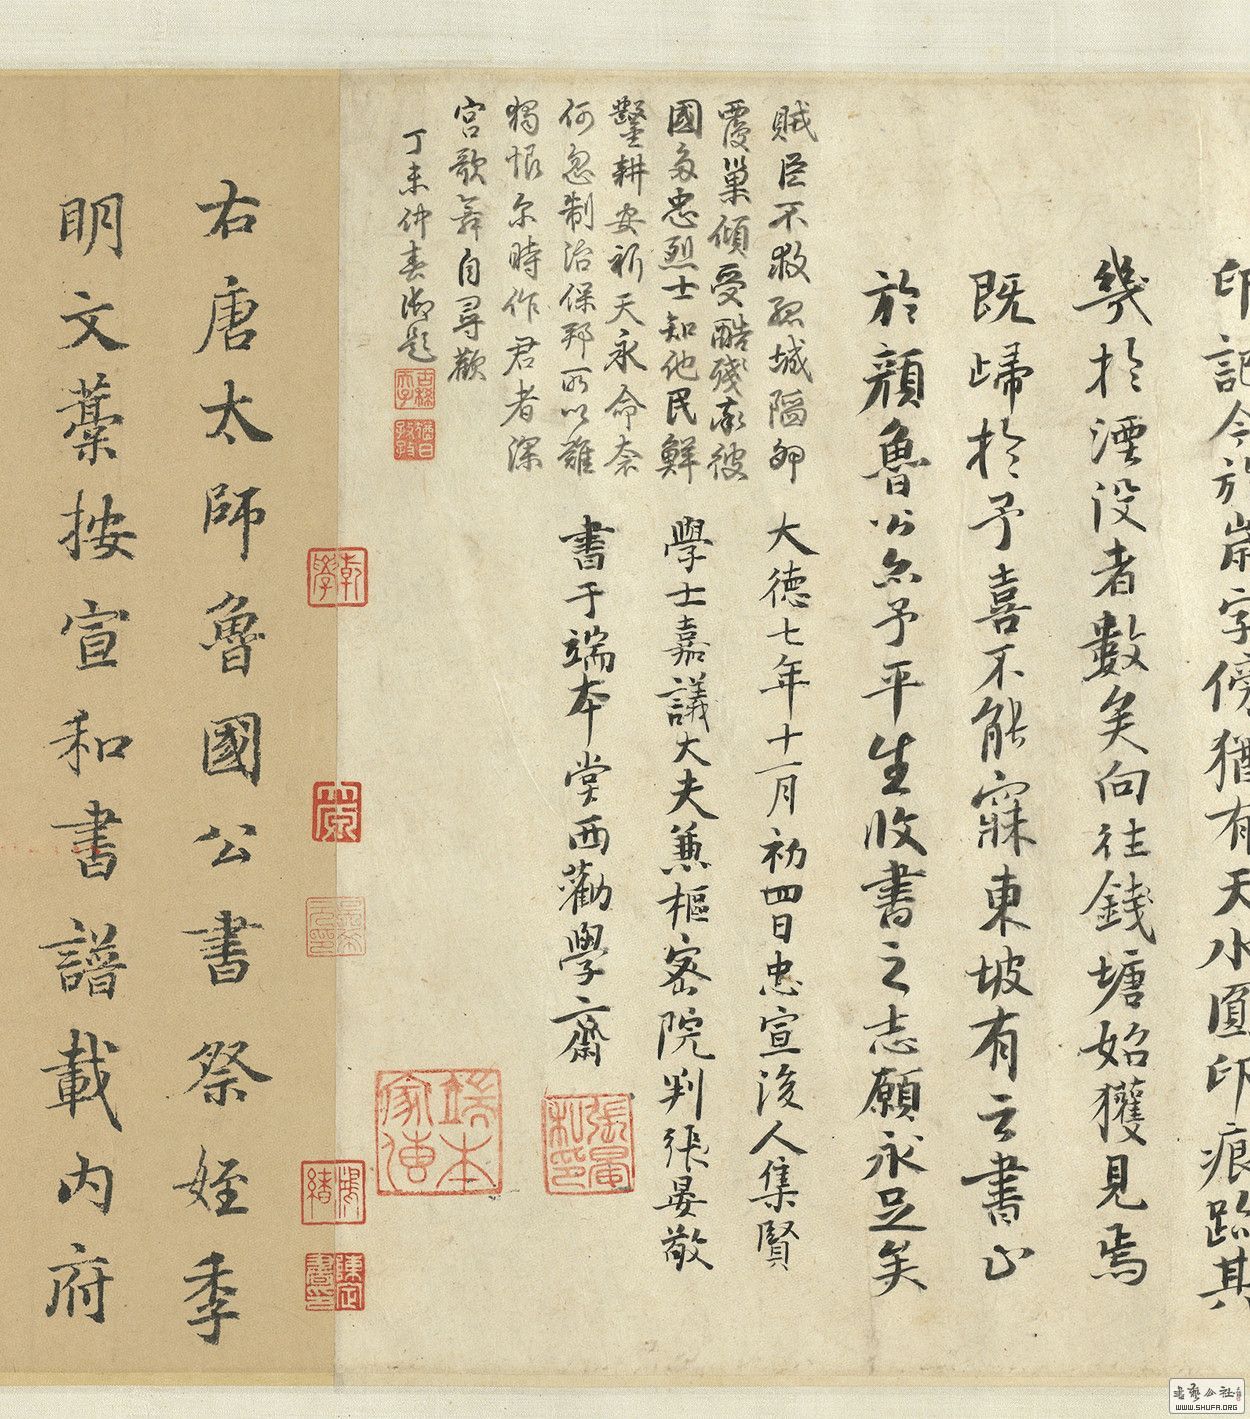 印記今於嵗字傍猶有天水圓印痕跡其
幾於湮没者數矣向往錢塘始獲見焉
既歸於予喜不能寐東坡有云書止
於顔魯公亦予平生收書之志願永足矣
賊臣不救孤城陷卵
覆巢傾受酷殘彼
國多忠烈士知他民鮮
鑿耕安祈天永命奈
何忽制治保邦所以難
獨恨尓時作君者深
宫歌舞自尋歡
丁未仲春御題
古稀天子
猶日孜孜
大德七年十一月初四日忠宣後人集賢
學士嘉議大夫兼樞密院判張晏敬
書于端本堂西勸學齋
張晏私印
端本家傳
乾學
右唐太師魯國公書祭姪季
明文藁按宣和書譜載内府
書藝公社
WWW.SHUFA.ORG